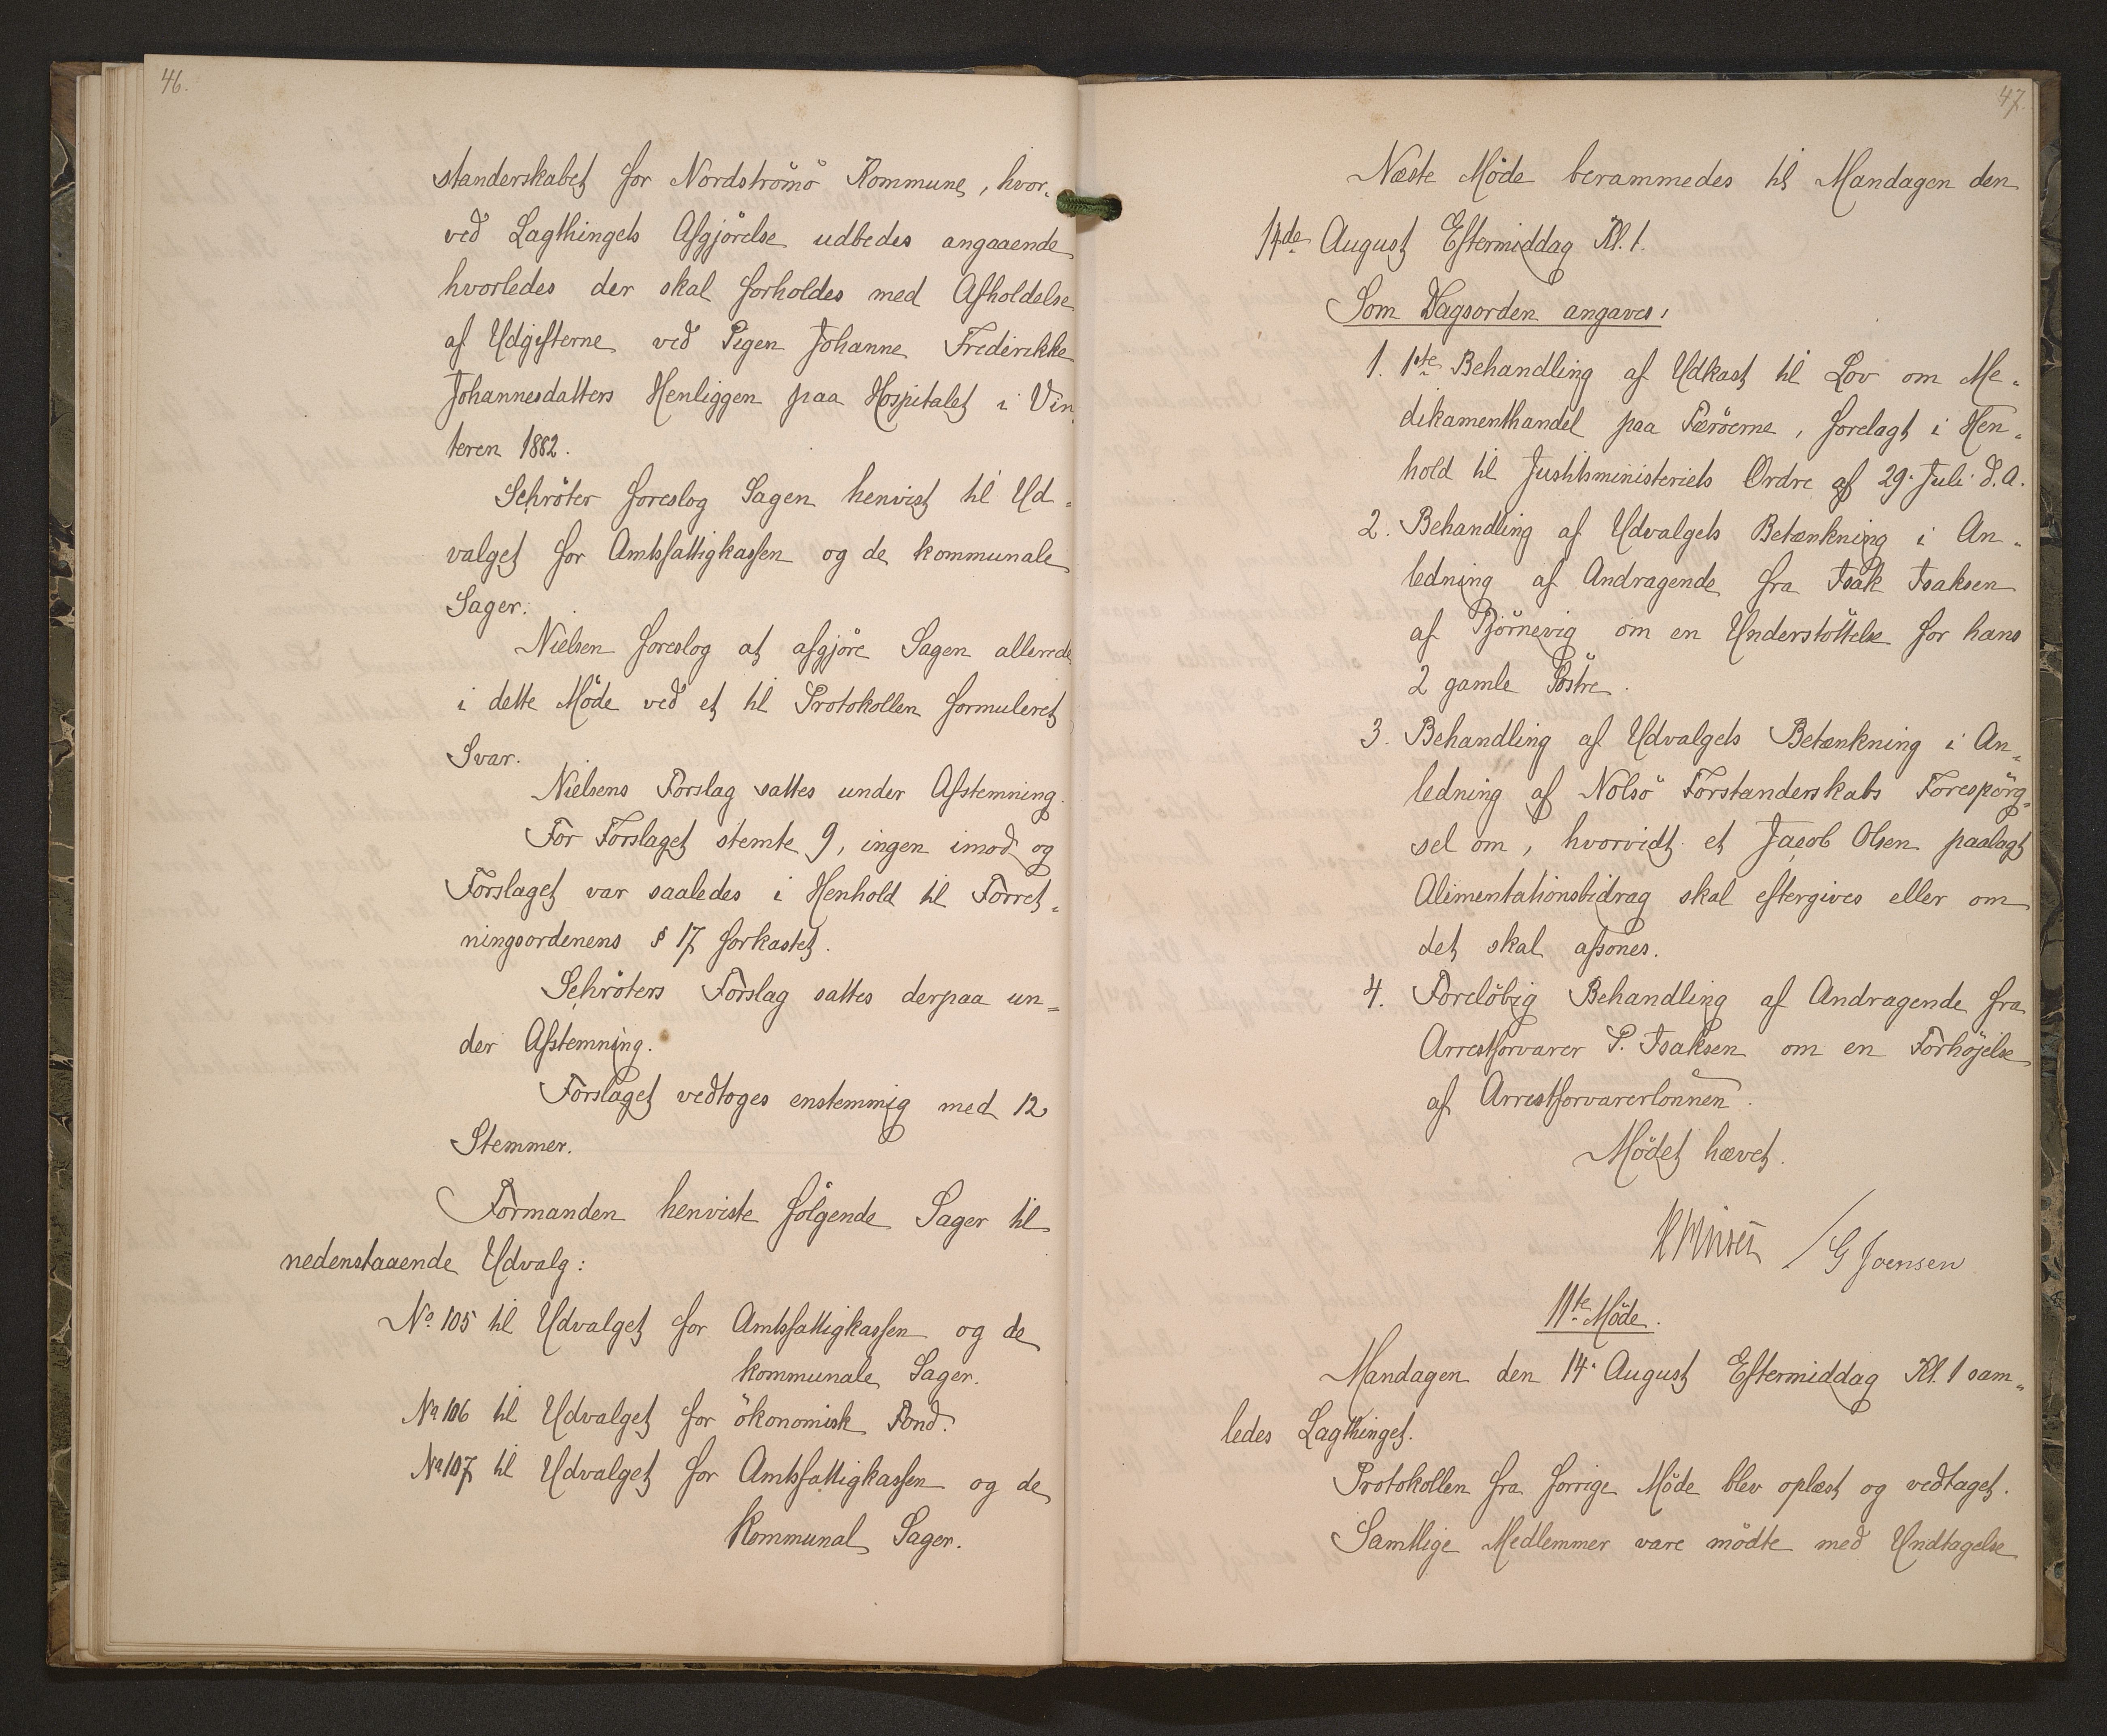 46.
standerskabet for Nordströmö Kommune, hvor-
ved Lagthingets Afgjörelse udbedes angaaende
hvorledes der skal forholdes med Afholdelse
af Udgifterne ved Pigen Johanne Frederikke
Johannesdatters Henliggen paa Hospitalet i Vin
teren 1882.
Schröter foreslog Sagen henvist til Ud-
valget for Amtsfattigkassen og de kommunale
Sager.
Nielsen foreslog at afgjöre Sagen allerede
i dette Möde ved et til Protokollen formuleret
Svar.
Nielsens Forslag sattes under Afstemning.
For Forslaget stemte 9, ingen imod og
Forslaget var saaledes i Henhold til Forret-
ningsordenens § 17 forkastet.
Schröters Forslag sattes derpaa un-
der Afstemning.
Forslaget vedtoges enstemmig med 12
Stemmer.
Formanden henviste fölgende Sager til
nedenstaaende Udvalg:
No 105 til Udvalget for Amtsfattigkassen og de
kommunale Sager.
No 106 til Udvalget for ökonomisk Fond.
No 107 til Udvalget for Amtsfattigkassen og de
Kommunal Sager.
47.
Næste Möde berammedes til Mandagen den
14de August Eftermiddag Kl. 1.
Som Dagsorden angaves:
1. 1ste Behandling af Udkast til Lov om Me-
dikamenthandel paa Færöerne, forelagt i Hen-
hold til Justitsministeriets Ordre af 29. Juli d.A.
2. Behandling af Udvalgets Betænkning i An-
ledning af Andragende fra Isak Isaksen
af Bjömevig om en Understöttelse for hans
2 gamle Söstre.
3. Behandling af Udvalgets Betænkning i An-
ledning af Nolsö Forstanderskabs Forespörg-
sel om, hvorvidt et Jacob Olsen paalagt
Alimentationsbidrag skal eftergives eller om
det skal afsones.
4. Forelöbig Behandling af Andragende fra
Arrestforvarer P. Isaksen om en Forhöjelse
af Arrestforvarerlönnen.
Mödet hævet.
/ G Joensen
11te Möde.
Mandagen den 14. August Eftermiddag Kl. 1 sam-
ledes Lagthinget.
Protokollen fra forrige Möde blev oplæst og vedtaget.
Samtlige Medlemmer vare mödte med Undtagelse